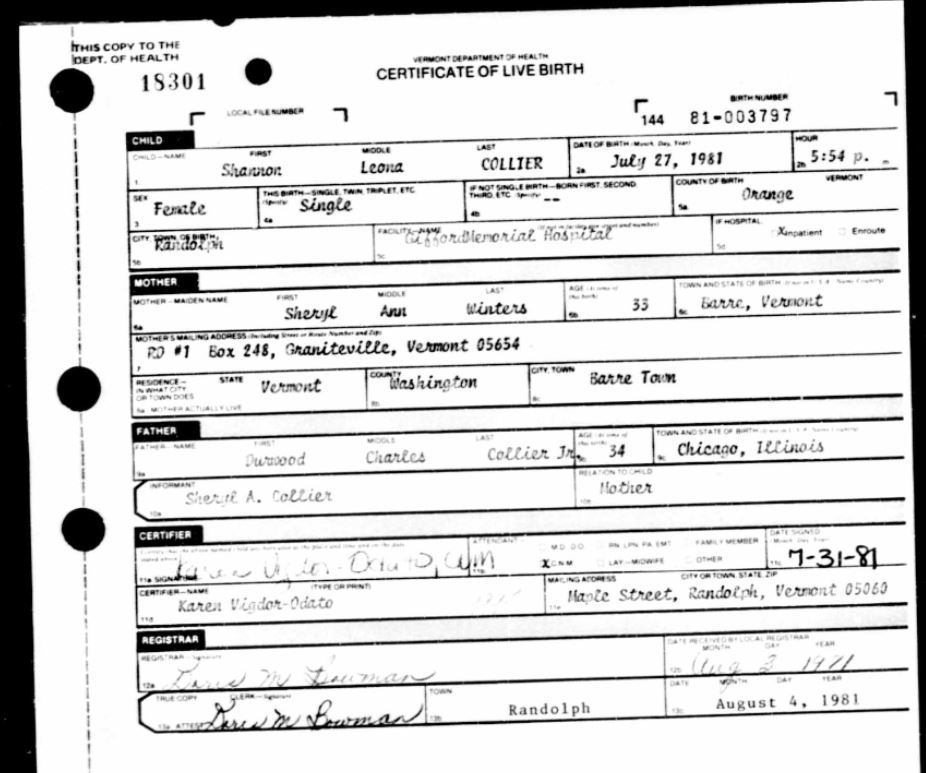 THIS COPY TO THE
DEPT. OF HEALTH
18301
VERMONT DEPARTMENT OF HEALTH
CERTIFICATE OF LIVE BIRTH
LOCAL FILE NUMBER
BIRTH NUMBER
144 81-003797
CHILD
CHILD—NAME FIRST MIDDLE LAST DATE OF BIRTH (Month, Day, Year) HOUR
1 Shannon Leona COLLIER 2a July 27, 1981 2b 5:54 p. m
SEX THIS BIRTH—SINGLE, TWIN, TRIPLET, ETC. (Specify) IF NOT SINGLE BIRTH—BORN FIRST, SECOND THIRD, ETC. (Specify) COUNTY OF BIRTH VERMONT
3 Female 4a Single 4b -- 5a Orange
CITY, TOWN, OF BIRTH FACILITY—NAME (If not in facility, give street and number) IF HOSPITAL
5b Randolph 5c Gifford Memorial Hospital 5d X Inpatient Enroute
MOTHER
MOTHER—MAIDEN NAME FIRST MIDDLE LAST AGE (At time of this birth) TOWN AND STATE OF BIRTH (If not in U.S.A. Name Country)
6a Sheryl Ann Winters 6b 33 6c Barre, Vermont
MOTHER'S MAILING ADDRESS (Including Street or Route Number and Zip)
7 RD #1 Box 248, Graniteville, Vermont 05654
RESIDENCE— STATE COUNTY CITY, TOWN
IN WHAT CITY Vermont Washington Barre Town
OR TOWN DOES
8a MOTHER ACTUALLY LIVE 8b 8c
FATHER
FATHER—NAME FIRST MIDDLE LAST AGE (At time of this birth) TOWN AND STATE OF BIRTH (If not in U.S.A. Name Country)
9a Durwood Charles Collier Jr. 9b 34 9c Chicago, Illinois
INFORMANT RELATION TO CHILD
10a Sheryl A. Collier 10b Mother
CERTIFIER
I certify that the above named child was born alive at the place and time and on the date stated above
ATTENDANT— M.D. D.O. RN. LPN. PA. EMT FAMILY MEMBER DATE SIGNED (Month, Day, Year)
11a SIGNATURE Karen Vigdor-Odato, CNM 11b X C.N.M LAY—MIDWIFE OTHER 11c 7-31-81
CERTIFIER—NAME (TYPE OR PRINT) MAILING ADDRESS CITY OR TOWN, STATE, ZIP
11d Karen Vigdor-Odato 11e Maple Street, Randolph, Vermont 05060
REGISTRAR
REGISTRAR—Signature DATE RECEIVED BY LOCAL REGISTRAR MONTH DAY YEAR
12a Doris M Bowman 12b Aug 3 1981
TRUE COPY CLERK—Signature TOWN DATE MONTH DAY YEAR
13a ATTEST Doris M Bowman 13b Randolph 13c August 4, 1981